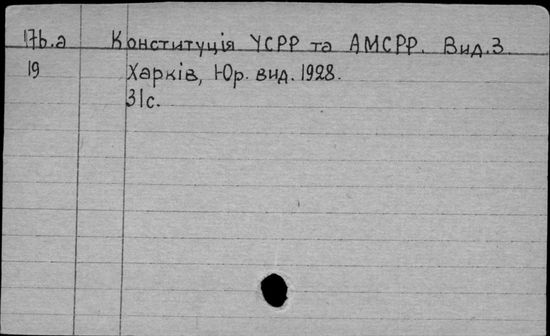 17b.a Конституція УСРР та АМСРР. Вид.3.
19 Харків, Юр. вид. 1928.
31с.